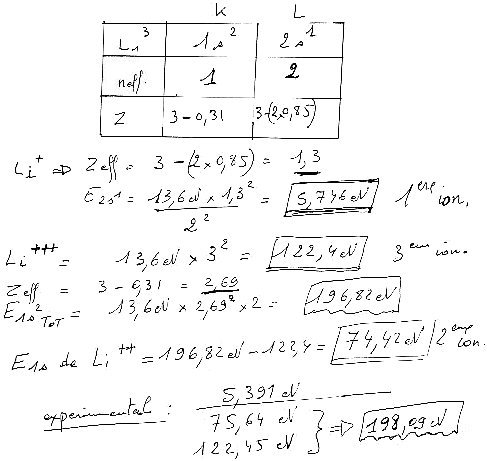 K L
Li³ 1s² 2s¹
neff. 1 2
Z 3-0,31 3-(2x0,85)
Li⁺ ⇒ Zeff = 3-(2x0,85) = 1,3
E2s¹ = 13,6eV x 1,3² / 2² = 5,746eV 1ere ion.
Li⁺⁺⁺ = 13,6eV x 3² = 122,4eV 3eme ion.
Zeff = 3-0,31 = 2,69
E1s² TOT = 13,6eV x 2,69² x 2 = 196,82eV
E1s de Li⁺⁺ = 196,82eV - 122,4 = 74,42eV 2eme ion.
experimental : 5,391eV
75,64 eV
122,45 eV } ⇒ 198,09eV